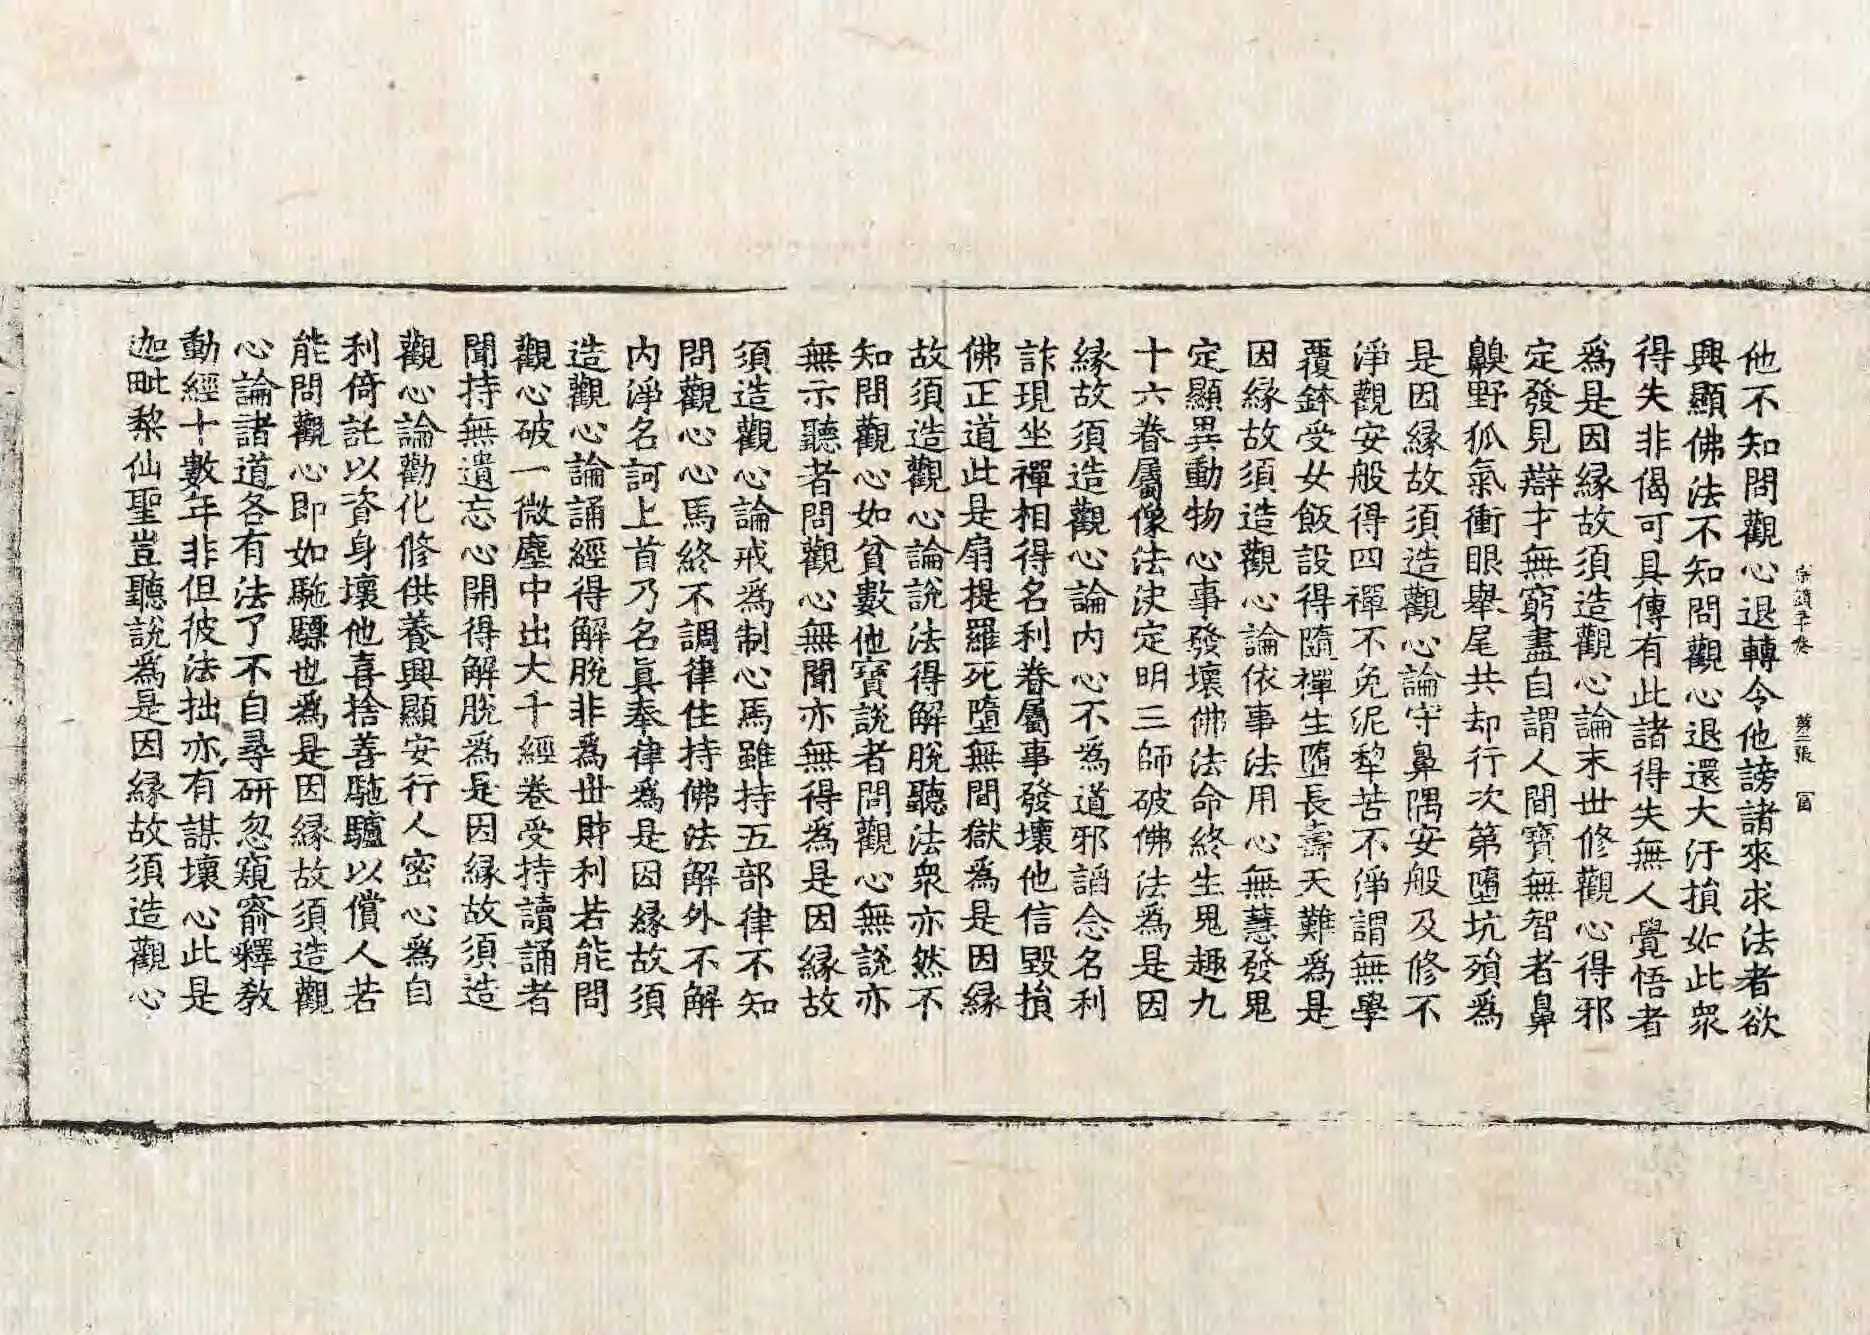 宗鏡 第二張 冨
他不知問觀心退轉令他謗諸來求法者欲
興顯佛法不知問觀心退還大汙損如此衆
得失非偈可具傳有此諸得失無人覺悟者
爲是因縁故須造觀心論末世修觀心得邪
定發見辯才無窮盡自謂人間寶無智者鼻
齅野狐氣衝眼舉尾共却行次第墮坑殞爲
是因縁故須造觀心論守鼻隅安般及修不
淨觀安般得四禪不免泥犂苦不淨謂無學
覆鉢受女飯設得隨禪生墮長壽天難爲是
因縁故須造觀心論依事法用心無慧發鬼
定顯異動物心事發壞佛法命終生鬼趣九
十六眷屬像法決定明三師破佛法爲是因
縁故須造觀心論内心不爲道邪諂念名利
詐現坐禪相得名利眷屬事發壞他信毀損
佛正道此是扇提羅死墮無間獄爲是因縁
故須造觀心論說法得解脫聽法衆亦然不
知問觀心如貧數他寶說者問觀心無說亦
無示聽者問觀心無聞亦無得爲是因縁故
須造觀心論戒爲制心馬雖持五部律不知
問觀心心馬終不調律住持佛法解外不解
内淨名訶上首乃名眞奉律爲是因縁故須
造觀心論誦經得解脫非爲世財利若能問
觀心破一微塵中出大千經卷受持讀誦者
聞持無遺忘心開得解脫爲是因縁故須造
觀心論勸化修供養興顯安行人密心爲自
利倚託以資身壞他喜捨善駞驢以償人若
能問觀心即如駞驃也爲是因縁故須造觀
心論諸道各有法了不自尋研忽窺窬釋教
動經十數年非但彼法拙亦有謀壞心此是
迦毗黎仙聖豈聽說爲是因縁故須造觀心